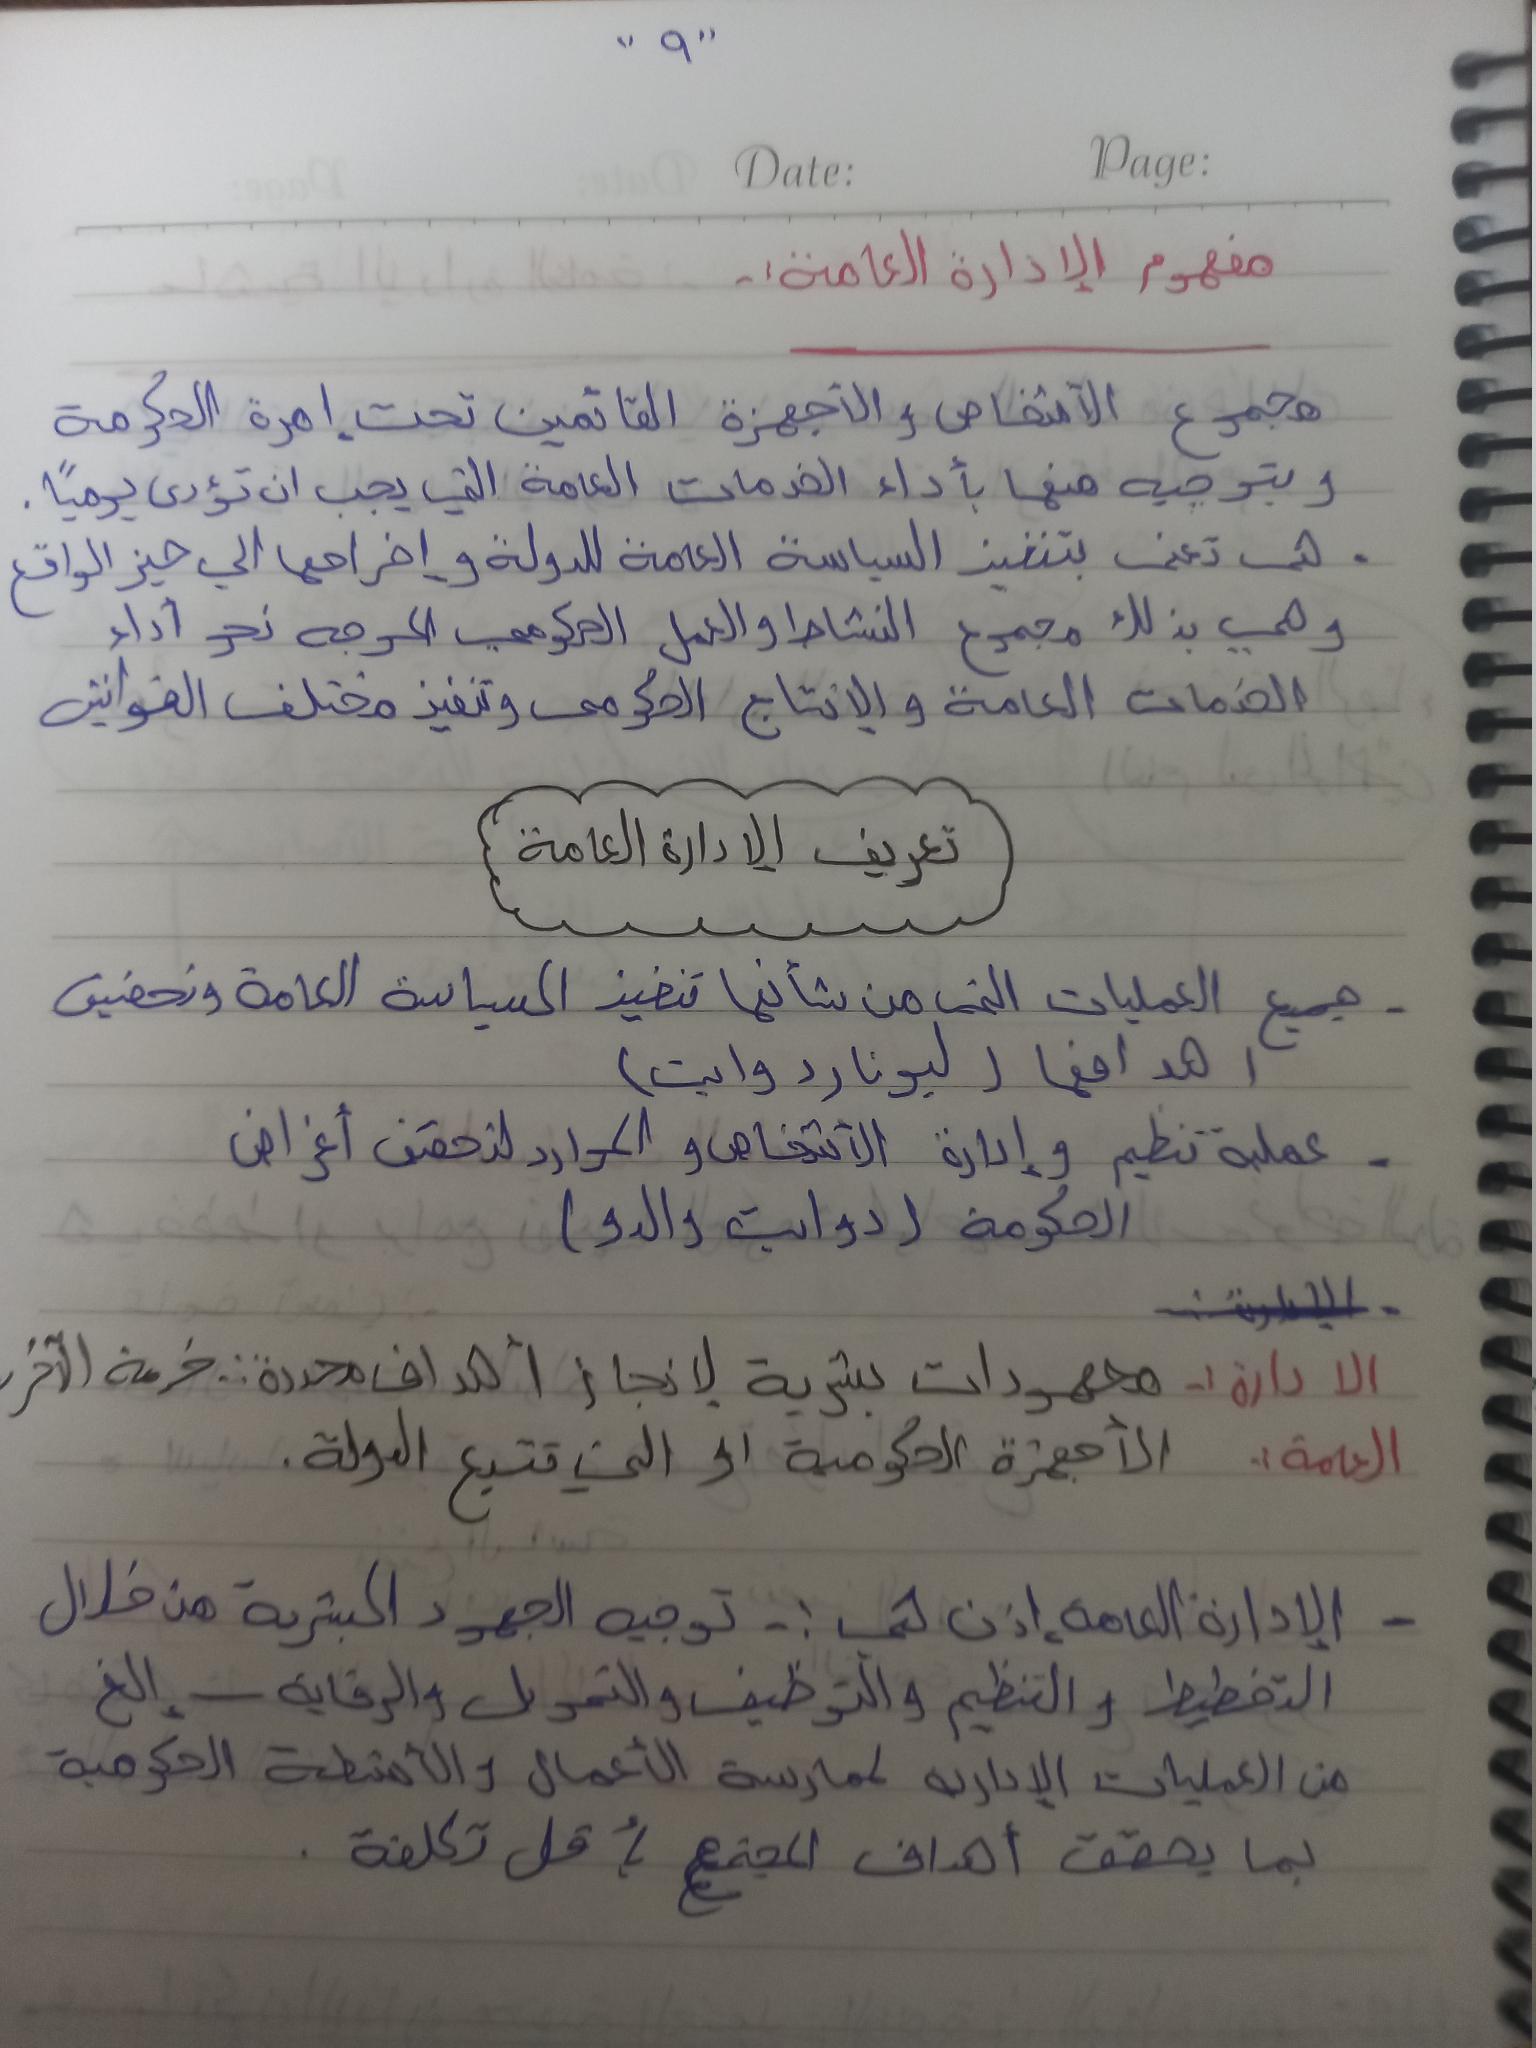 "٩"
Date: Page:
مفهوم الإدارة العامة :-
مجموع الأشخاص والأجهزة القائمين تحت إمرة الحكومة
وبتوجيه منها بأداء الخدمات العامة التي يجب ان تؤدى يوميًا.
. هى تعنى بتنفيذ السياسة العامة للدولة وإخراجها الي حيز الواقع
وهي بذلك مجموع النشاط والعمل الحكومي الموجه نحو أداء
الخدمات العامة والإنتاج الحكومى وتنفيذ مختلف القوانين
تعريف الإدارة العامة
- جميع العمليات التى من شأنها تنفيذ السياسة العامة وتحقيق
اهدافها (ليونارد وايت)
- عملية تنظيم وإدارة الأشخاص و الموارد لتحقيق أغراض
الحكومة (دوايت والدو)
الادارة :- مجهودات بشرية لإنجاز أهداف محددة :. خدمة الآخر
العامة :. الأجهزة الحكومية او التي تتبع الدولة.
- الإدارة العامة إذن هى :- توجيه الجهود البشرية من خلال
التخطيط والتنظيم والتوظيف والتمويل والرقابة — إلخ
من العمليات الإدارية لممارسة الأعمال والأنشطة الحكومية
بما يحقق أهداف المجتمع بأقل تكلفة .